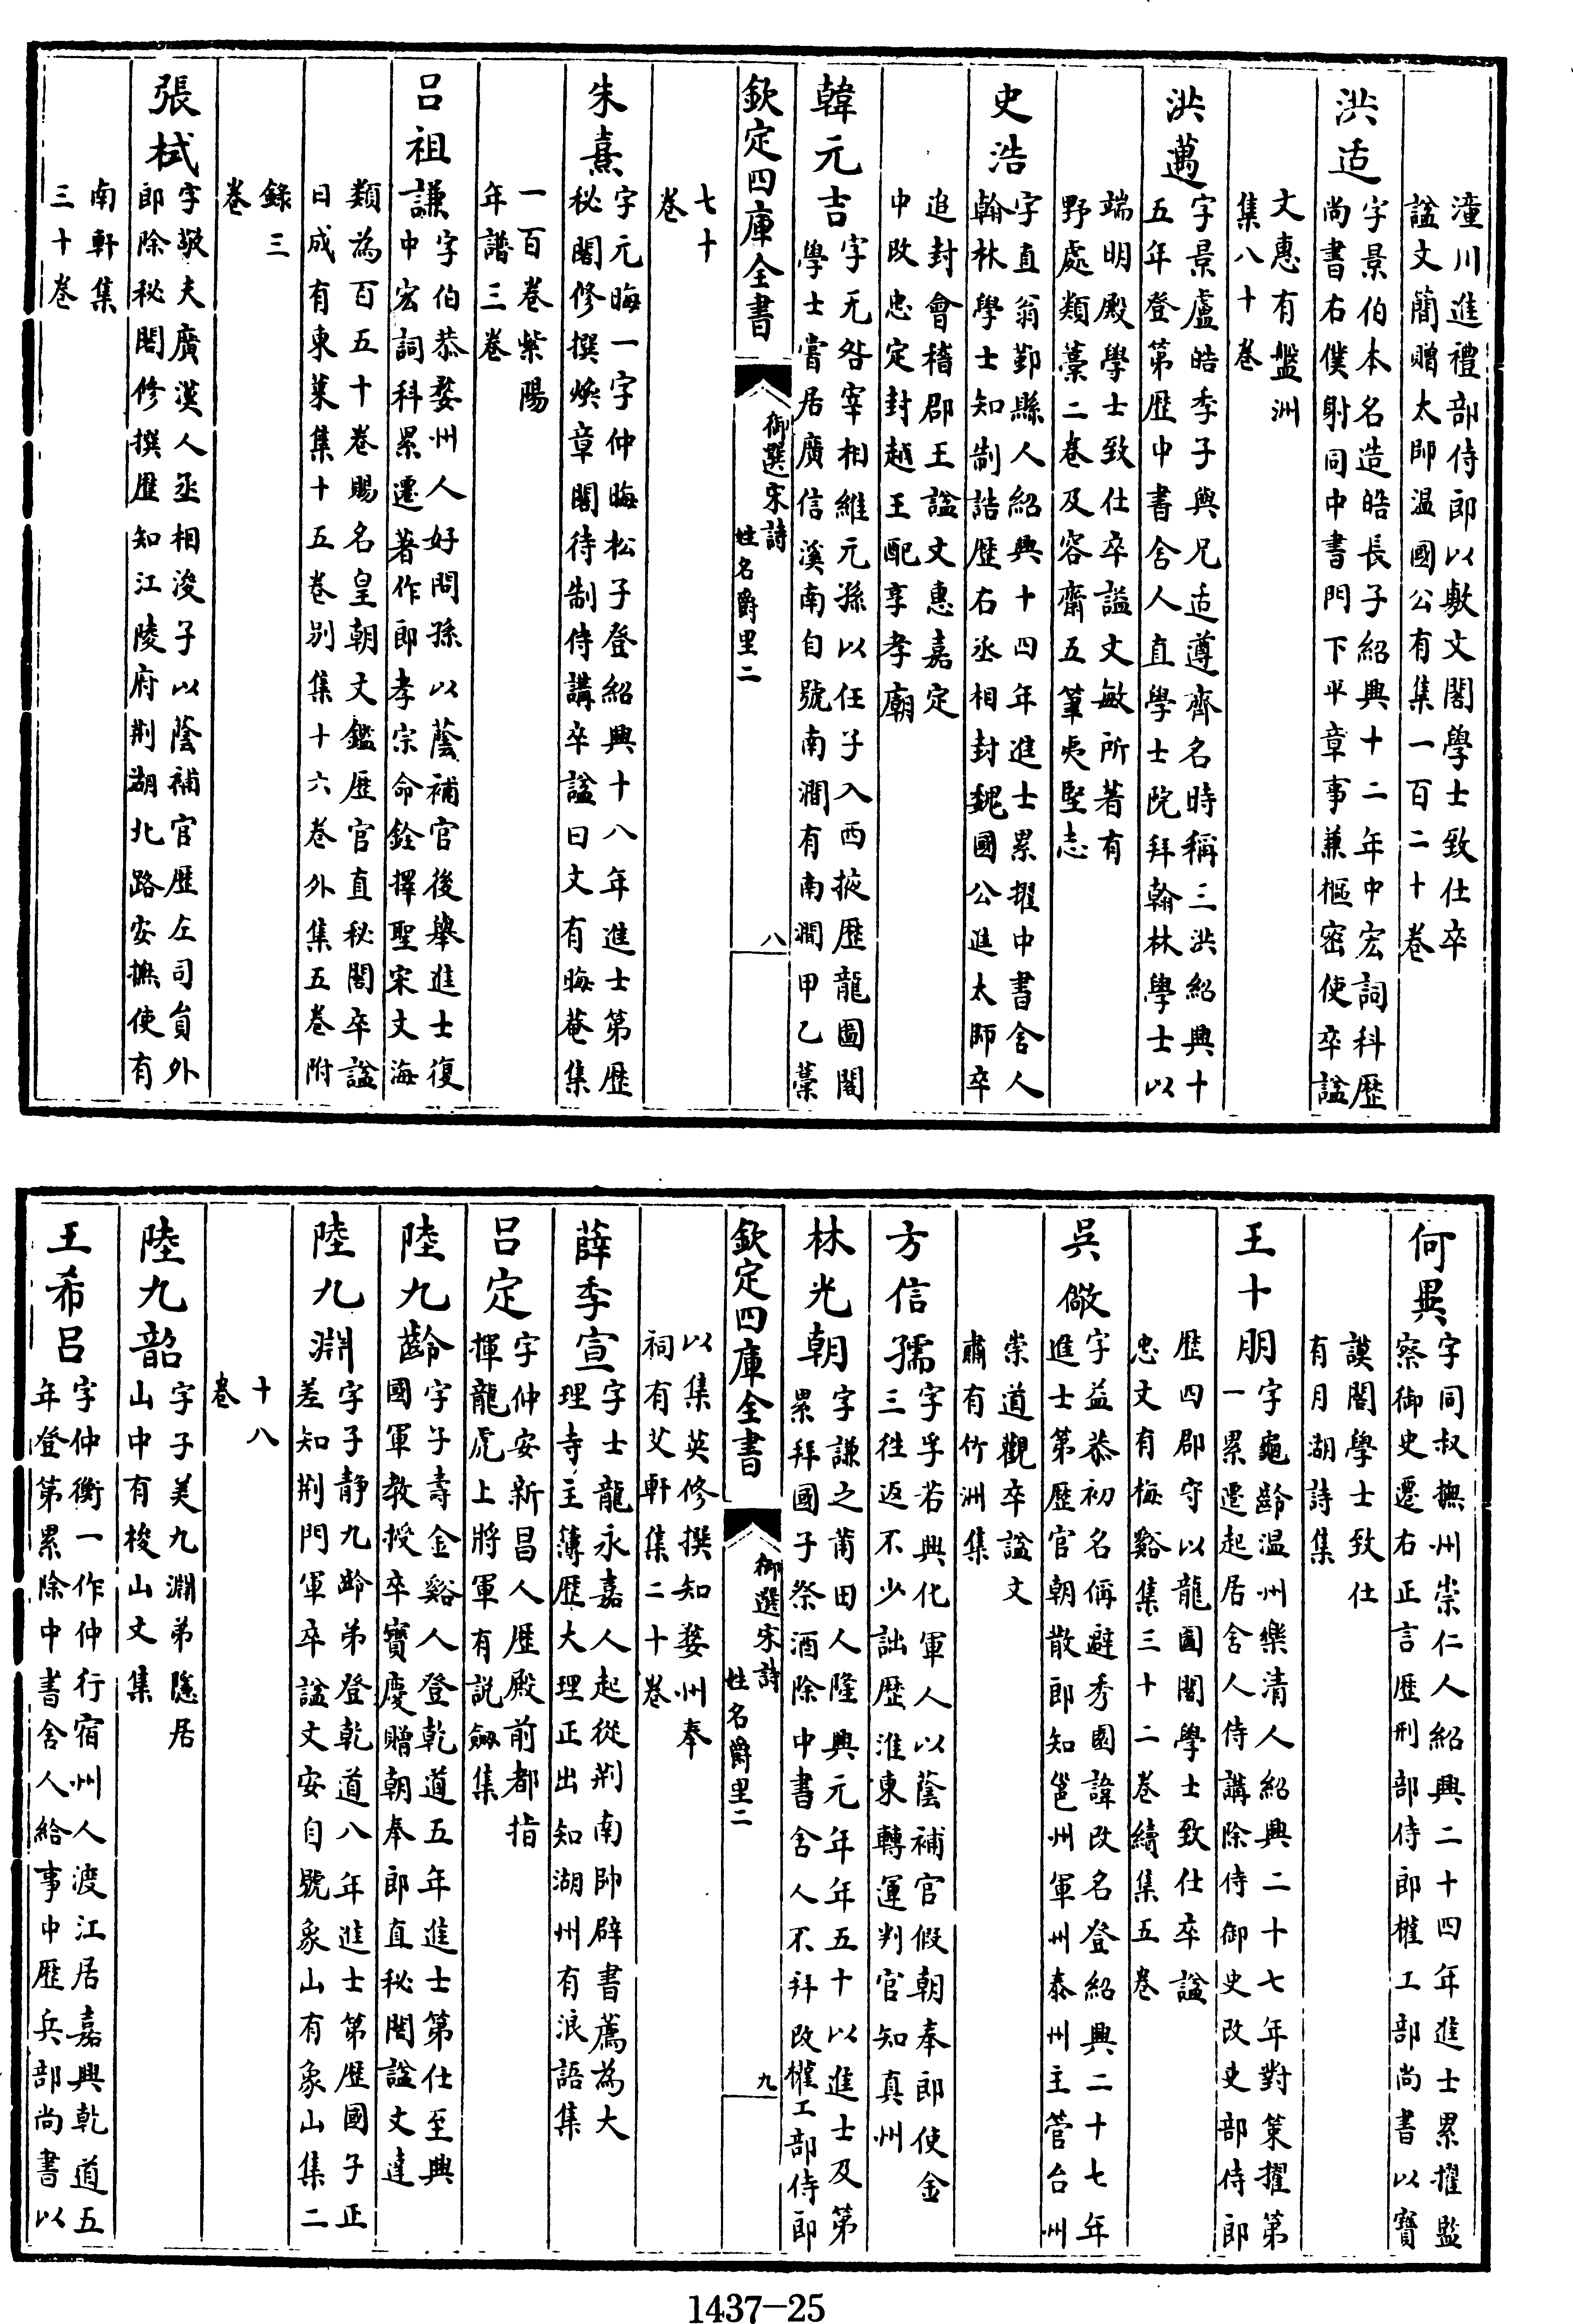 潼川進禮部侍郎以敷文閣學士致仕卒
諡文簡贈太師温國公有集一百二十卷
洪适
字景伯本名造皓長子紹興十二年中宏詞科歷
尚書右僕射同中書門下平章事兼樞密使卒諡
文惠有盤洲
集八十卷
洪邁
字景盧皓季子與兄适遵齊名時稱三洪紹興十
五年登第歷中書舍人直學士院拜翰林學士以
端明殿學士致仕卒諡文敏所著有
野處類藁二卷及容齋五筆夷堅志
史浩
字直翁鄞縣人紹興十四年進士累擢中書舍人
翰林學士知制誥歷右丞相封魏國公進太師卒
追封會稽郡王諡文惠嘉定
中改忠定封越王配享孝廟
韓元吉
字无咎宰相維元孫以任子入西掖歷龍圖閣
學士嘗居廣信溪南自號南澗有南澗甲乙藁
欽定四庫全書
御選宋詩
姓名爵里二
八
七十
卷
朱熹
字元晦一字仲晦松子登紹興十八年進士第歷
秘閣修撰煥章閣待制侍講卒諡曰文有晦菴集
一百卷紫陽
年譜三卷
呂祖謙
字伯恭婺州人好問孫以蔭補官後舉進士復
中宏詞科累遷著作郎孝宗命銓擇聖宋文海
類為百五十卷賜名皇朝文鑑歷官直秘閣卒諡
日成有東萊集十五卷别集十六卷外集五卷附
錄三
卷
張栻
字敬夫廣漢人丞相浚子以蔭補官歷左司員外
郎除秘閣修撰歷知江陵府荆湖北路安撫使有
南軒集
三十卷
何異
字同叔撫州崇仁人紹興二十四年進士累擢監
察御史遷右正言歷刑部侍郎權工部尚書以寶
謨閣學士致仕
有月湖詩集
王十朋
字龜齡温州樂清人紹興二十七年對策擢第
一累遷起居舍人侍講除侍御史改吏部侍郎
歷四郡守以龍圖閣學士致仕卒諡
忠文有梅谿集三十二卷續集五卷
吳儆
字益恭初名偁避秀園諱改名登紹興二十七年
進士第歷官朝散郎知邕州軍州泰州主管台州
崇道觀卒諡文
肅有竹洲集
方信孺
字孚若興化軍人以蔭補官假朝奉郎使金
三往返不少詘歷淮東轉運判官知真州
林光朝
字謙之莆田人隆興元年年五十以進士及第
累拜國子祭酒除中書舍人不拜改權工部侍郎
欽定四庫全書
御選宋詩
姓名爵里二
九
以集英修撰知婺州奉
祠有艾軒集二十卷
薛季宣
字士龍永嘉人起從荆南帥辟書薦為大
理寺主簿歷大理正出知湖州有浪語集
呂定
字仲安新昌人歷殿前都指
揮龍虎上將軍有説劔集
陸九齡
字子壽金谿人登乾道五年進士第仕至興
國軍教授卒寶慶贈朝奉郎直秘閣諡文達
陸九淵
字子静九齡弟登乾道八年進士第歷國子正
差知荆門軍卒諡文安自號象山有象山集二
十八
卷
陸九韶
字子美九淵弟隱居
山中有梭山文集
王希呂
字仲衡一作仲行宿州人渡江居嘉興乾道五
年登第累除中書舍人給事中歷兵部尚書以
1437-25